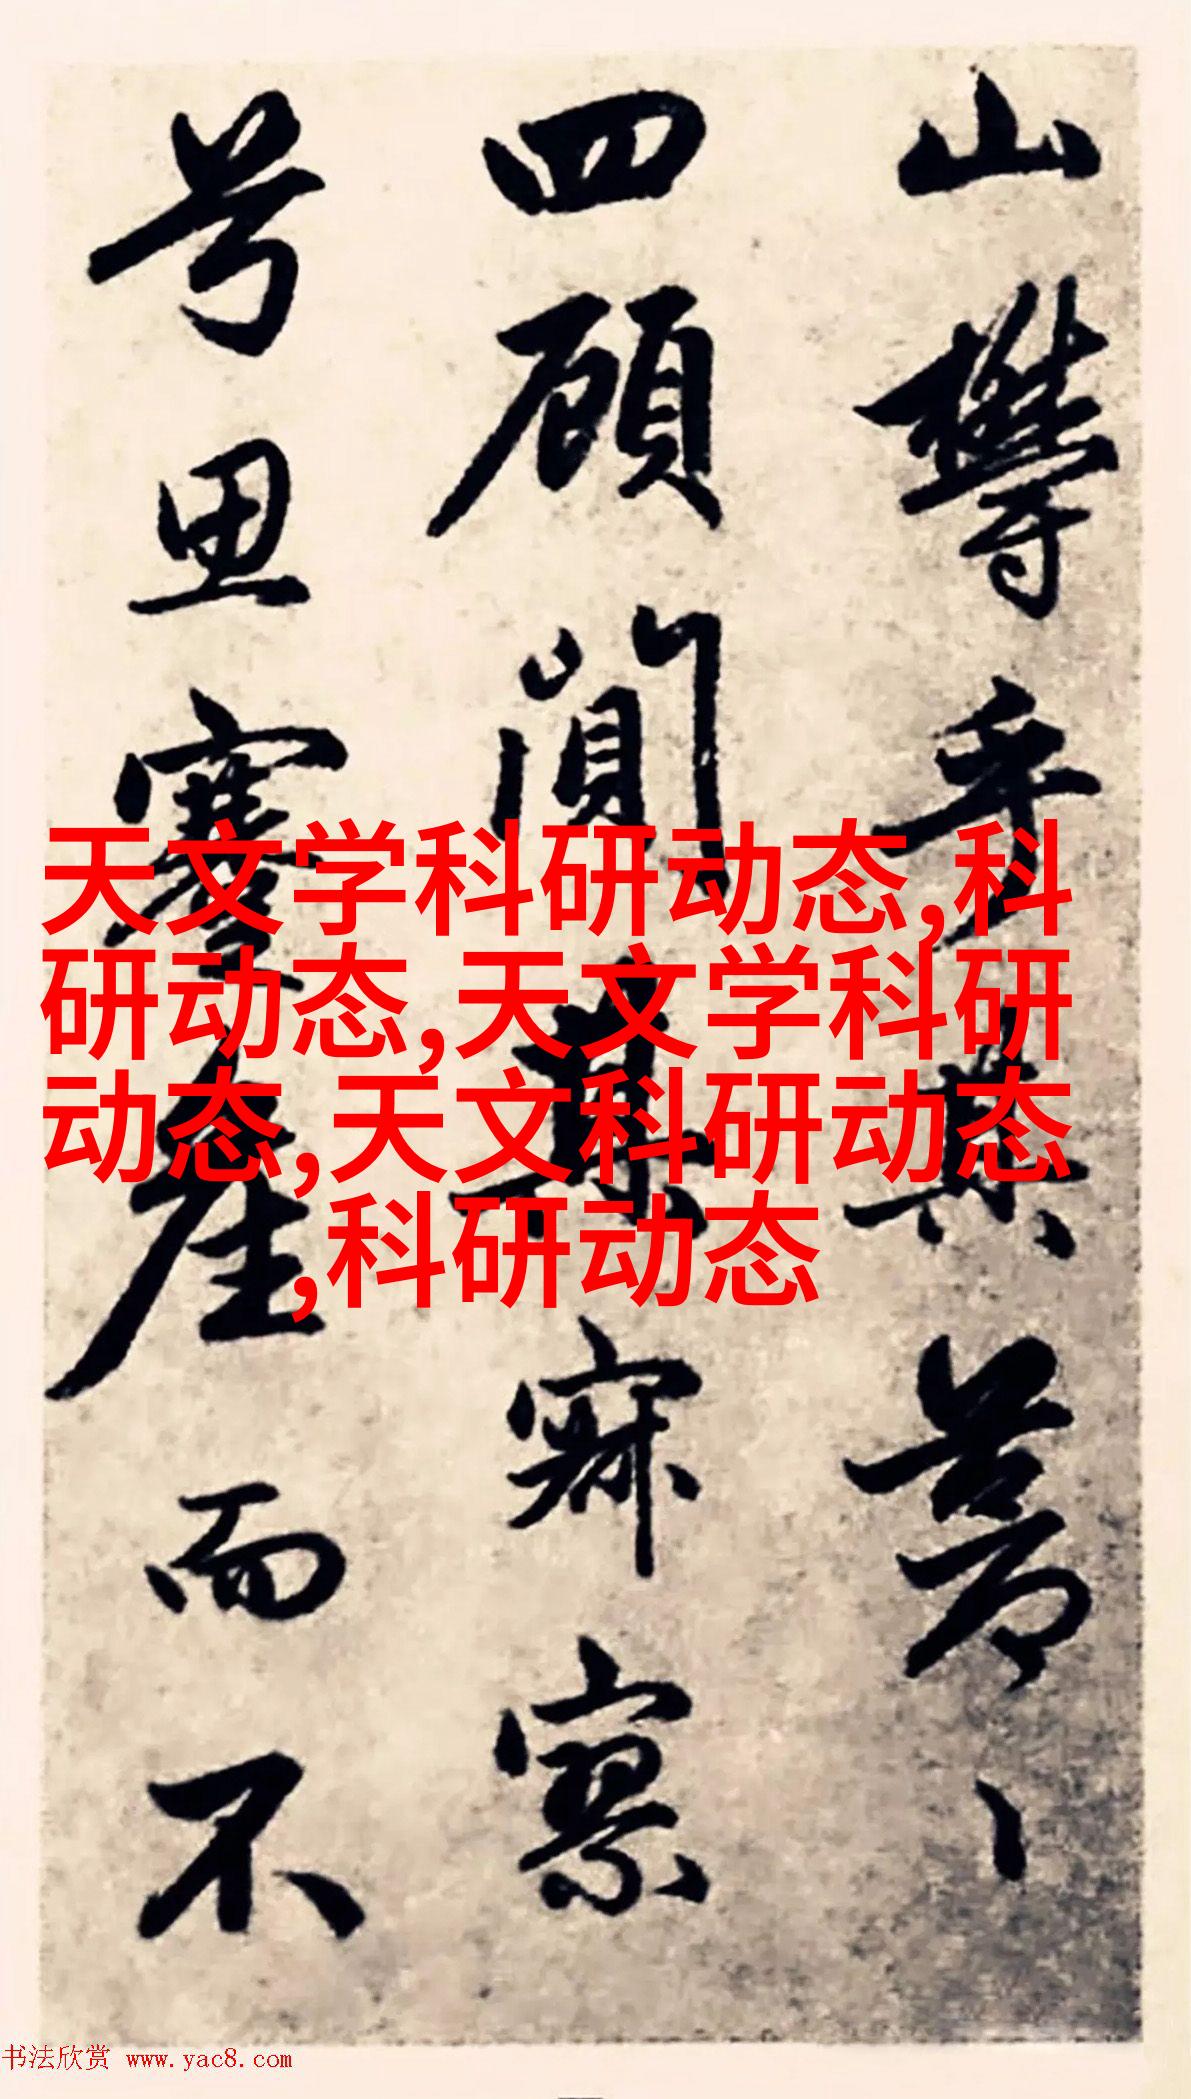 山欝乎其葱々
四頋闃其寂寥
兮思蹇產而不
天文学科研动态,科
研动态,天文学科研
动态,天文科研动态
,科研动态
书法欣赏 www.yac8.com